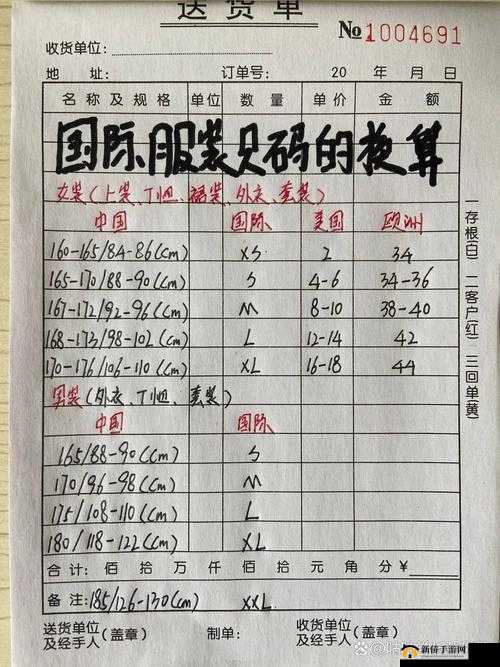 送货单
№1004691
收货单位:
地 址: 订单号: 20 年 月 日
名称及规格 单位 数量 单价 金额
国际服装尺码的换算
女装(上装、T恤、裙装、外衣、套装)
中国 国际 美国 欧洲
160-165/84-86(cm) XS 2 34
165-170/88-90(cm) S 4-6 34-36
167-172/92-96(cm) M 8-10 38-40
168-173/98-102(cm) L 12-14 42
170-176/106-110(cm) XL 16-18 44
男装(外衣、T恤、套装)
中国 国际
165/88-90(cm) S
170/96-98(cm) M
175/108-110(cm) L
180/118-122(cm) XL
合计: 佰 拾 万 仟 佰 拾 元 角 分 ¥
备注: 185/126-130(cm) XXL
送货单位及经手人(盖章) 制单: 收货单位及经手人
一存根(白) 二客户(红) 三回单(黄)
新侨手游网